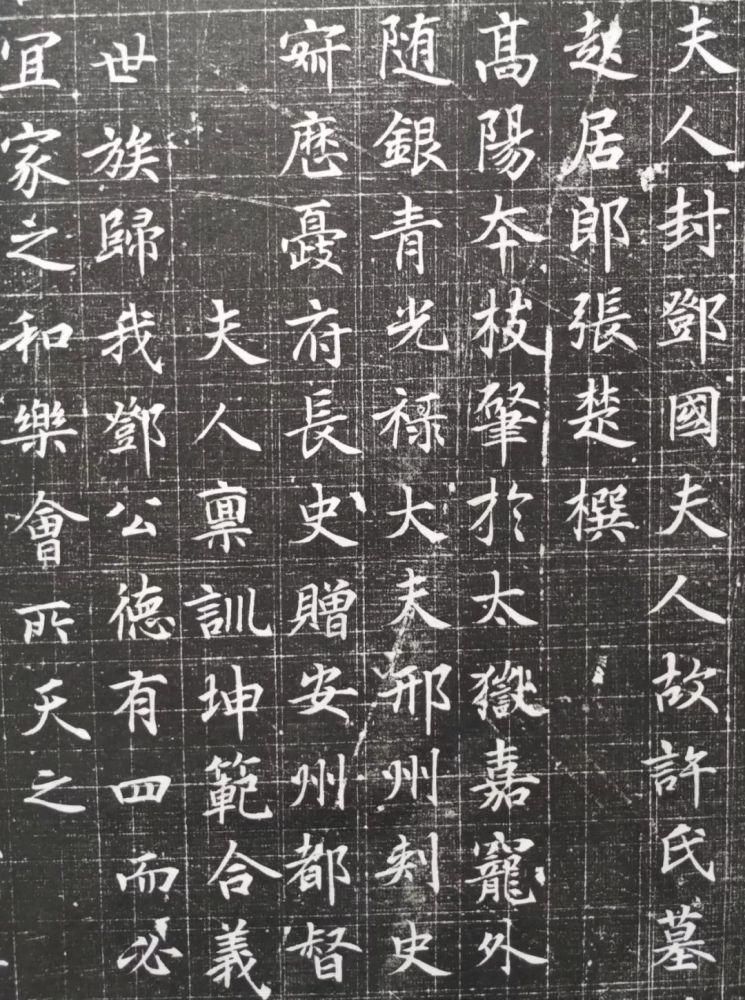 夫人封鄧國夫人故許氏墓
起居郎張楚撰
髙陽夲枝肇於太嶽嘉寵外
随銀青光禄大夫邢州刾史
歷夔府長史贈安州都督
夫人禀訓坤範合義
世族歸我鄧公德有四而必
宜家之和樂會所天之